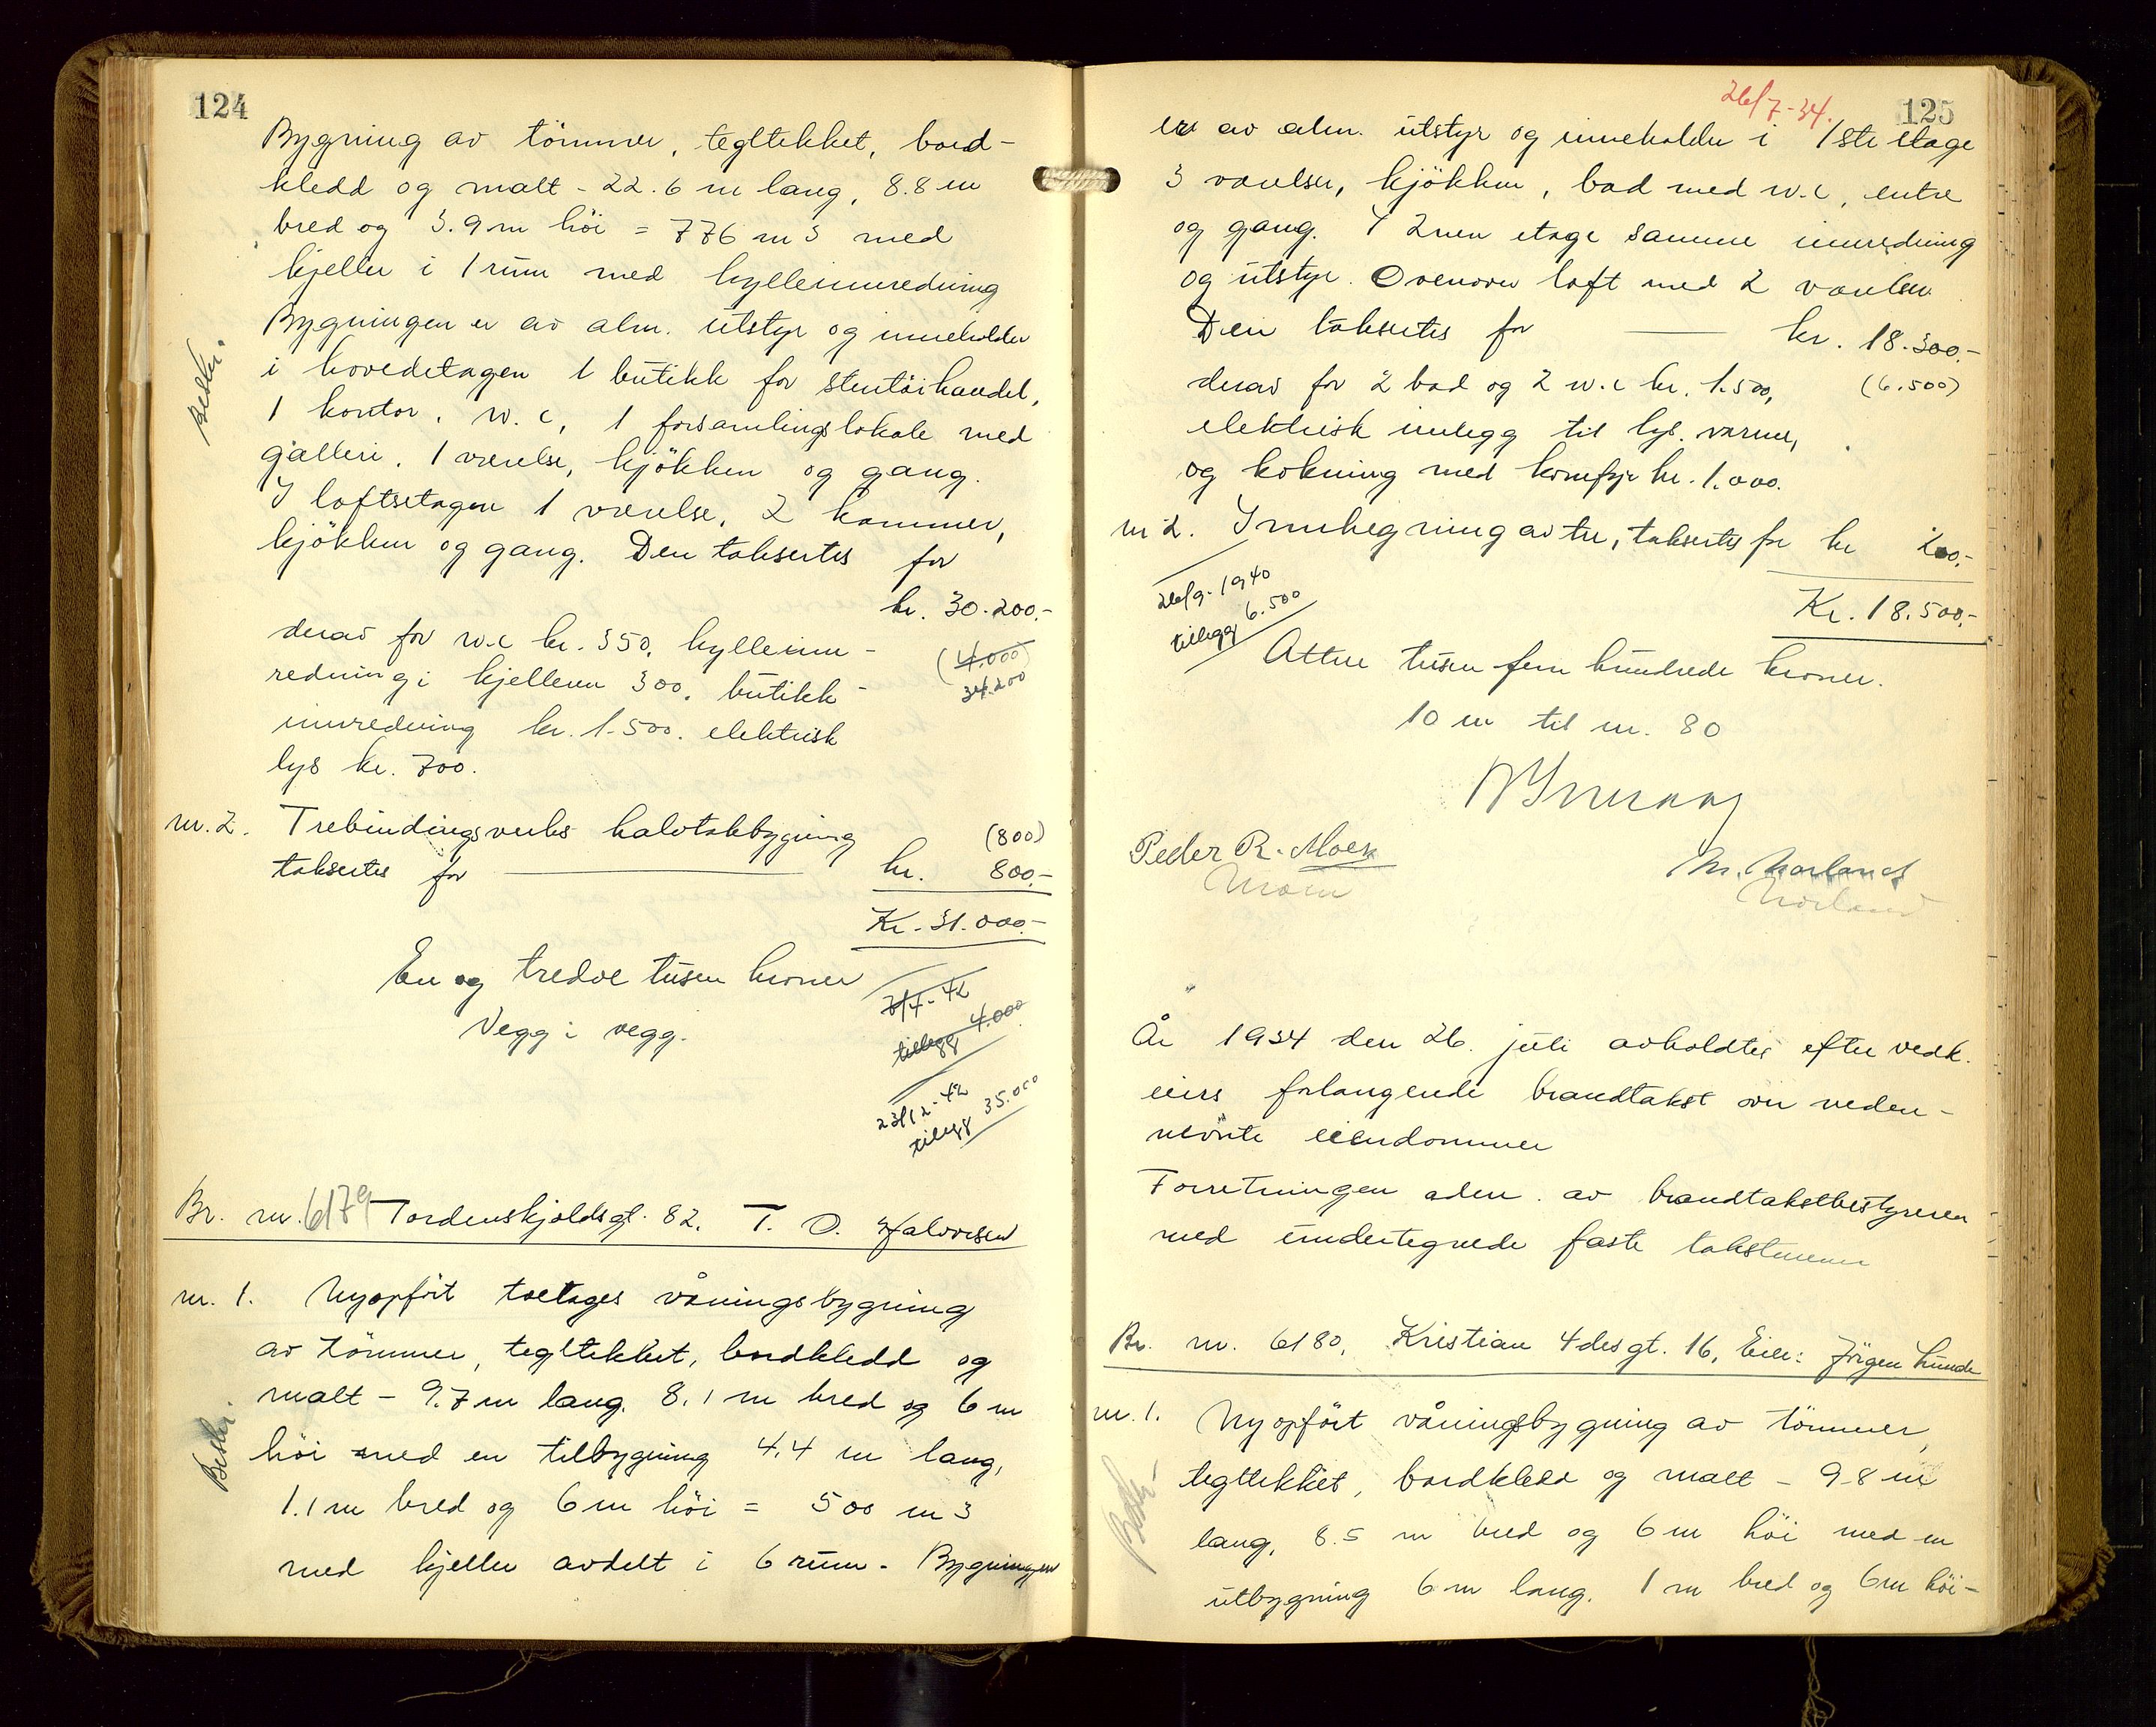 124
Bygning av tömmer, tegltekket, bord-
kledd og malt - 22.6 m lang, 8.8 m
bred og 3.9 m höi = 776 m3 med
kjeller i 1 rum med hylleinnredning
Bygningen er av alm. utstyr og inneholder
i hovedetagen 1 butikk for stentöihandel,
1 kontor, w.c, 1 forsamlingslokale med
galleri, 1 værelse, kjökken og gang.
I loftsetagen 1 værelse, 2 kammer,
kjökken og gang. Den taksertes for
kr. 30.200.-
Beskr.
derav for w.c kr. 350, hylleinn-
(4.000)
redning i kjelleren 300, butikk-
34.200
innredning kr. 1.500. elektrisk
lys kr. 700.
nr. 2. Trebindingsverks halvtakbygning
(800)
taksertes for kr. 800.-
Kr. 31.000.-
En og tredve tusen kroner
Vegg i vegg.
7/7-42
tillegg 4.000
23/12-42
tillegg 35.000
Br. nr. 6179 Tordenskjoldsgt. 82. T. O. Halvorsen
nr. 1. Nyopfört toetages våningsbygning
av tömmer, tegltekket, bordkledd og
malt - 9.7 m lang, 8.1 m bred og 6 m
höi med en tilbygning 4.4 m lang,
1.1 m bred og 6 m höi = 500 m3
med kjeller avdelt i 6 rum. Bygningen
Beskr.
26/7-34.
125
er av alm. utstyr og inneholder i 1ste etage
3 værelser, kjökken, bad med w.c, entre
og gang. I 2nen etage samme innredning
og utstyr. Ovenover loft med 2 værelser
Den taksertes for kr. 18.300.-
derav for 2 bad og 2 w.c kr. 1.500,
(6.500)
elektrisk innlegg til lys, varme,
og kokning med komfyr kr. 1.000.
nr 2. Innhegning av tre, taksertes for kr 200.-
26/9-1940
tillegg 6.500
Kr. 18.500.-
Atten tusen fem hundrede kroner.
10 m til nr. 80
Peder R. Moen
Moen
M. Norland
Norland
År 1934 den 26. juli avholdtes efter vedk.
eiers forlangende brandtakst over neden-
nevnte eiendommer
Forretningen adm. av brandtakstbestyreren
med undertegnede faste takstmenn
Br. nr. 6180, Kristian 4des gt. 16, Eier: Jörgen Lunde
nr. 1. Nyopfört våningsbygning av tömmer,
tegltekket, bordkledd og malt - 9.8 m
lang, 8.5 m bred og 6 m höi med en
utbygning 6 m lang, 1 m bred og 6 m höi-
Beskr.